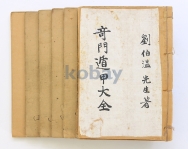 劉伯溫先生著
奇門遁甲大全
kobay